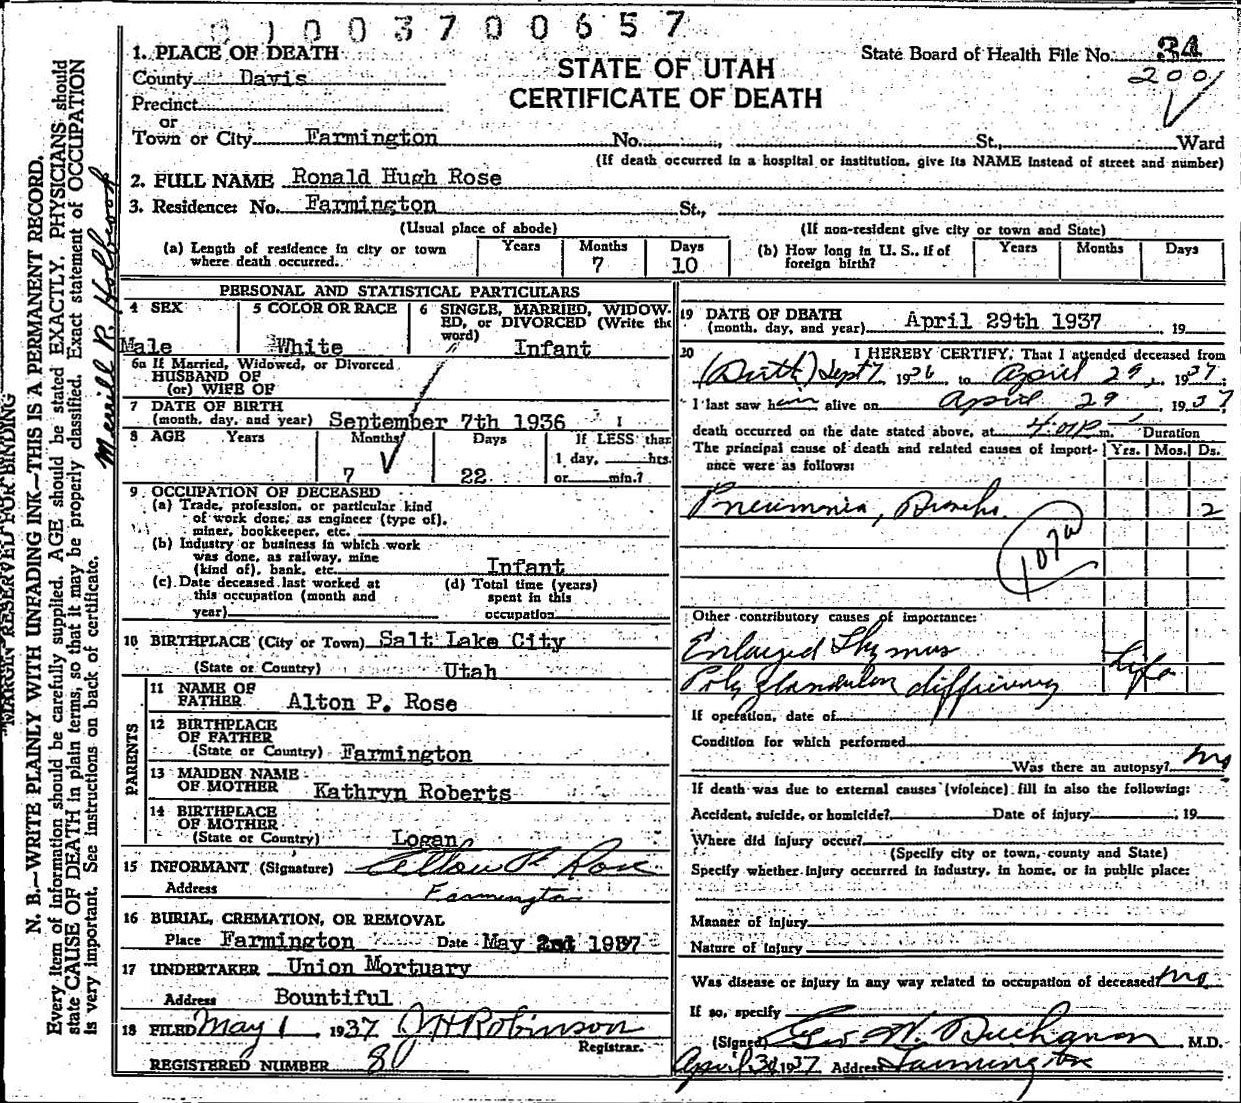 0 1 0 0 3 7 0 0 6 5 7
1. PLACE OF DEATH
County Davis
Precinct
or
Town or City Farmington No. , St., Ward
(If death occurred in a hospital or institution, give its NAME instead of street and number)
STATE OF UTAH
CERTIFICATE OF DEATH
State Board of Health File No. 34
2001
2. FULL NAME Ronald Hugh Rose
3. Residence: No. Farmington St.,
(Usual place of abode) (If non-resident give city or town and State)
(a) Length of residence in city or town where death occurred. Years Months 7 Days 10
(b) How long in U. S., if of foreign birth? Years Months Days
PERSONAL AND STATISTICAL PARTICULARS
4 SEX Male
5 COLOR OR RACE White
6 SINGLE, MARRIED, WIDOWED, or DIVORCED (Write the word) Infant
6a If Married, Widowed, or Divorced
HUSBAND OF
(or) WIFE OF
7 DATE OF BIRTH
(month, day, and year) September 7th 1936
8 AGE Years Months 7 Days 22 If LESS than
1 day, hrs.
or min.?
9 OCCUPATION OF DECEASED
(a) Trade, profession, or particular kind
of work done, as engineer (type of),
miner, bookkeeper, etc.
(b) Industry or business in which work
was done, as railway, mine
(kind of), bank, etc. Infant
(c) Date deceased last worked at
this occupation (month and
year)
(d) Total time (years)
spent in this
occupation
10 BIRTHPLACE (City or Town) Salt Lake City
(State or Country) Utah
PARENTS
11 NAME OF
FATHER Alton P. Rose
12 BIRTHPLACE
OF FATHER
(State or Country) Farmington
13 MAIDEN NAME
OF MOTHER Kathryn Roberts
14 BIRTHPLACE
OF MOTHER
(State or Country) Logan
15 INFORMANT (Signature) Alton P. Rose
Address Farmington
16 BURIAL, CREMATION, OR REMOVAL
Place Farmington Date May 2nd 1937
17 UNDERTAKER Union Mortuary
Address Bountiful
18 FILED May 1 1937 J H Robinson
Registrar.
REGISTERED NUMBER 80
19 DATE OF DEATH
(month, day, and year) April 29th 1937 , 19
20 I HEREBY CERTIFY, That I attended deceased from
(Birth) Sept 7 1936 to April 29, 1937.
I last saw him alive on April 29 1937
death occurred on the date stated above, at 4:01P m. Duration
The principal cause of death and related causes of importance were as follows: Yrs. Mos. Ds.
Pneumonia, Broncho. 2
107a
Other contributory causes of importance:
Enlarged Thymus
Poly glandular difficiency Life
If operation, date of
Condition for which performed
Was there an autopsy? no
If death was due to external causes (violence) fill in also the following:
Accident, suicide, or homicide? Date of injury , 19
Where did injury occur?
(Specify city or town, county and State)
Specify whether injury occurred in industry, in home, or in public place:
Manner of injury
Nature of injury
Was disease or injury in any way related to occupation of deceased? no
If so, specify
(Signed) Geo W. Buchanan, M.D.
April 30 1937 Address Farmington
MARGIN RESERVED FOR BINDING
N. B.—WRITE PLAINLY WITH UNFADING INK—THIS IS A PERMANENT RECORD.
Every item of information should be carefully supplied. AGE should be stated EXACTLY. PHYSICIANS should
state CAUSE OF DEATH in plain terms, so that it may be properly classified. Exact statement of OCCUPATION
is very important. See instructions on back of certificate.
Merrill R. Holbrook